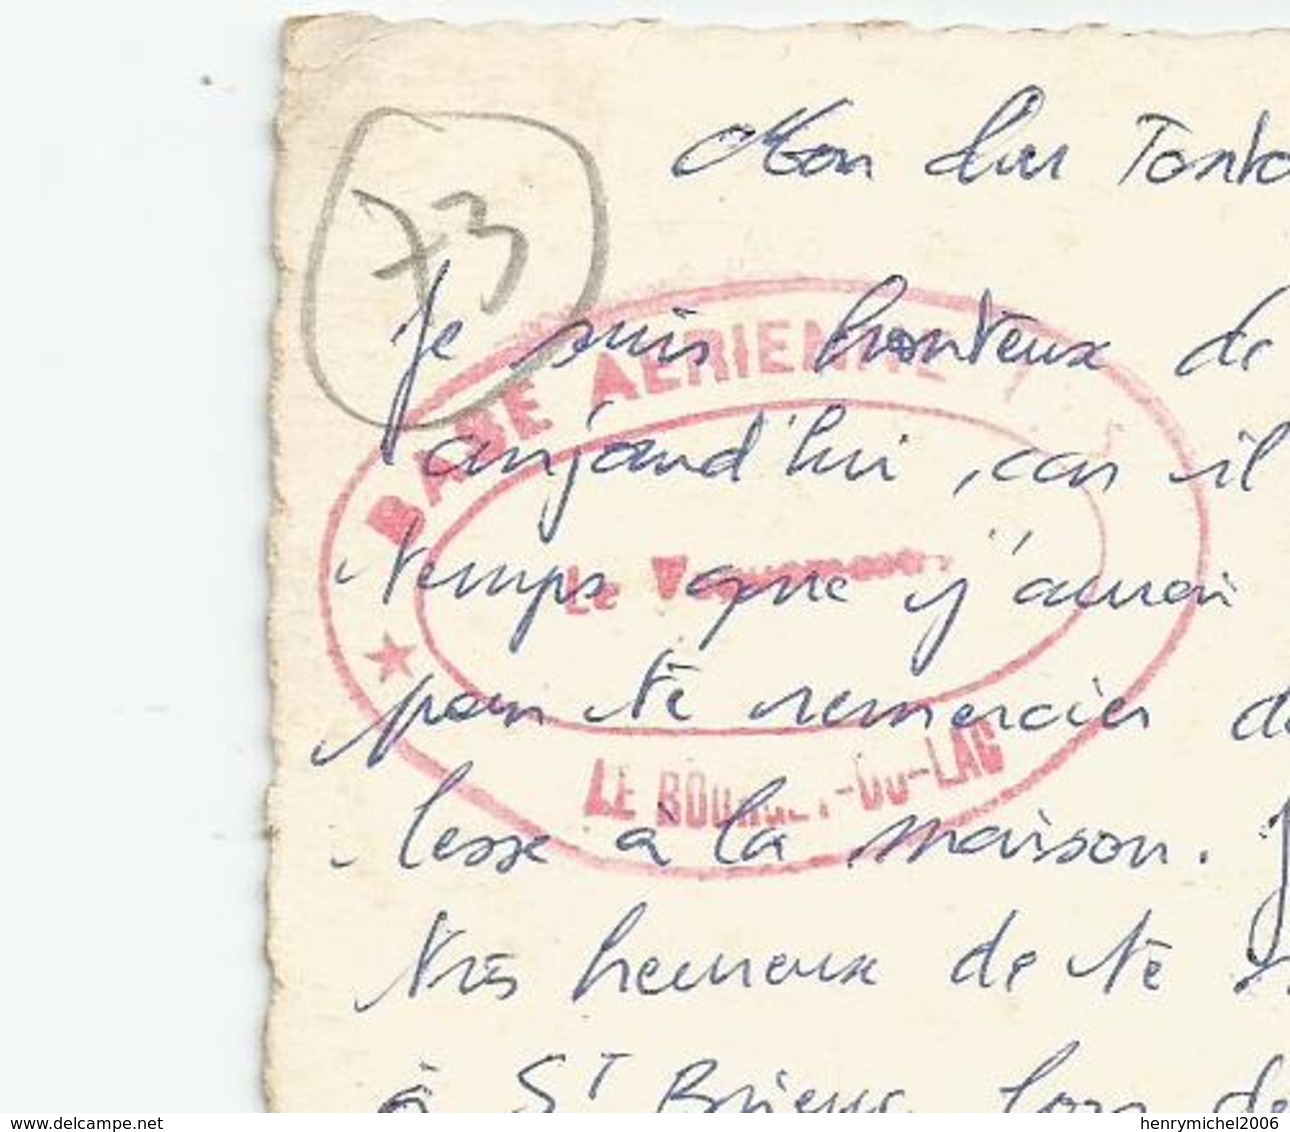 73
Mon cher Tonto
Je suis honteux de
BASE AERIENNE
aujourd'hui, car il
Le Vaguemestre
temps que j'aurai
pour te remercier d
LE BOURGET-DU-LAC
lesse à la maison. J
très heureux de te
à St Brieuc lors de
delcampe.net
henrymichel2006